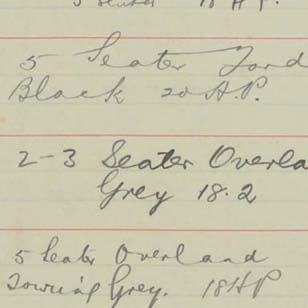 5 Seater 18 H.P.
5 Seater Ford
Black 20 H.P.
2-3 Seater Overla
Grey 18.2
5 Seater Overland
Touring Grey. 18HP